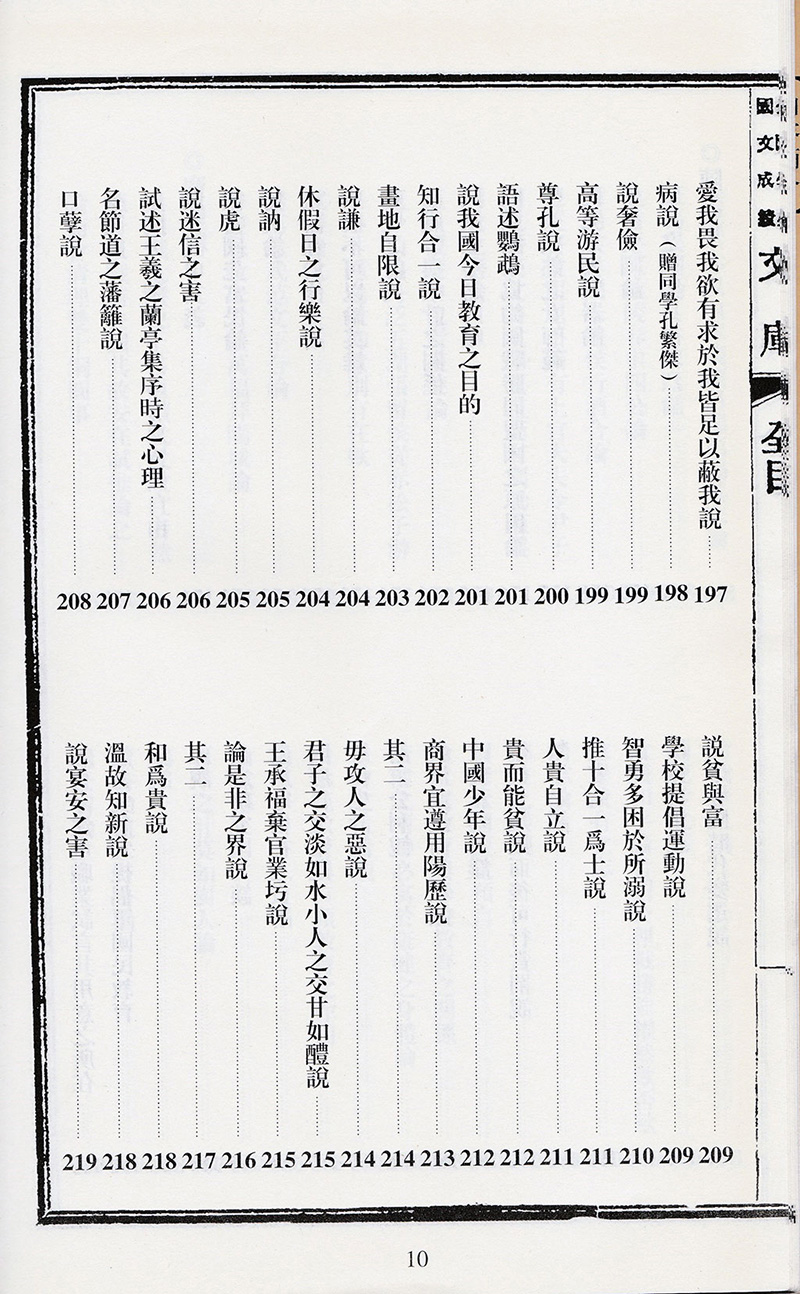 國文成績文庫 全目
愛我畏我欲有求於我皆足以蔽我說 197
病說（贈同學孔繁傑） 198
說奢儉 199
高等游民說 199
尊孔說 200
語述鸚鵡 201
說我國今日教育之目的 201
知行合一說 202
畫地自限說 203
說謙 204
休假日之行樂說 204
說訥 205
說虎 205
說迷信之害 206
試述王羲之蘭亭集序時之心理 206
名節道之藩籬說 207
口孽說 208
說貧與富 209
學校提倡運動說 209
智勇多困於所溺說 210
推十合一爲士說 211
人貴自立說 211
貴而能貧說 212
中國少年說 212
商界宜遵用陽歷說 213
其二 214
毋攻人之惡說 214
君子之交淡如水小人之交甘如醴說 215
王承福棄官業圬說 215
論是非之界說 216
其二 217
和爲貴說 218
溫故知新說 218
說宴安之害 219
10